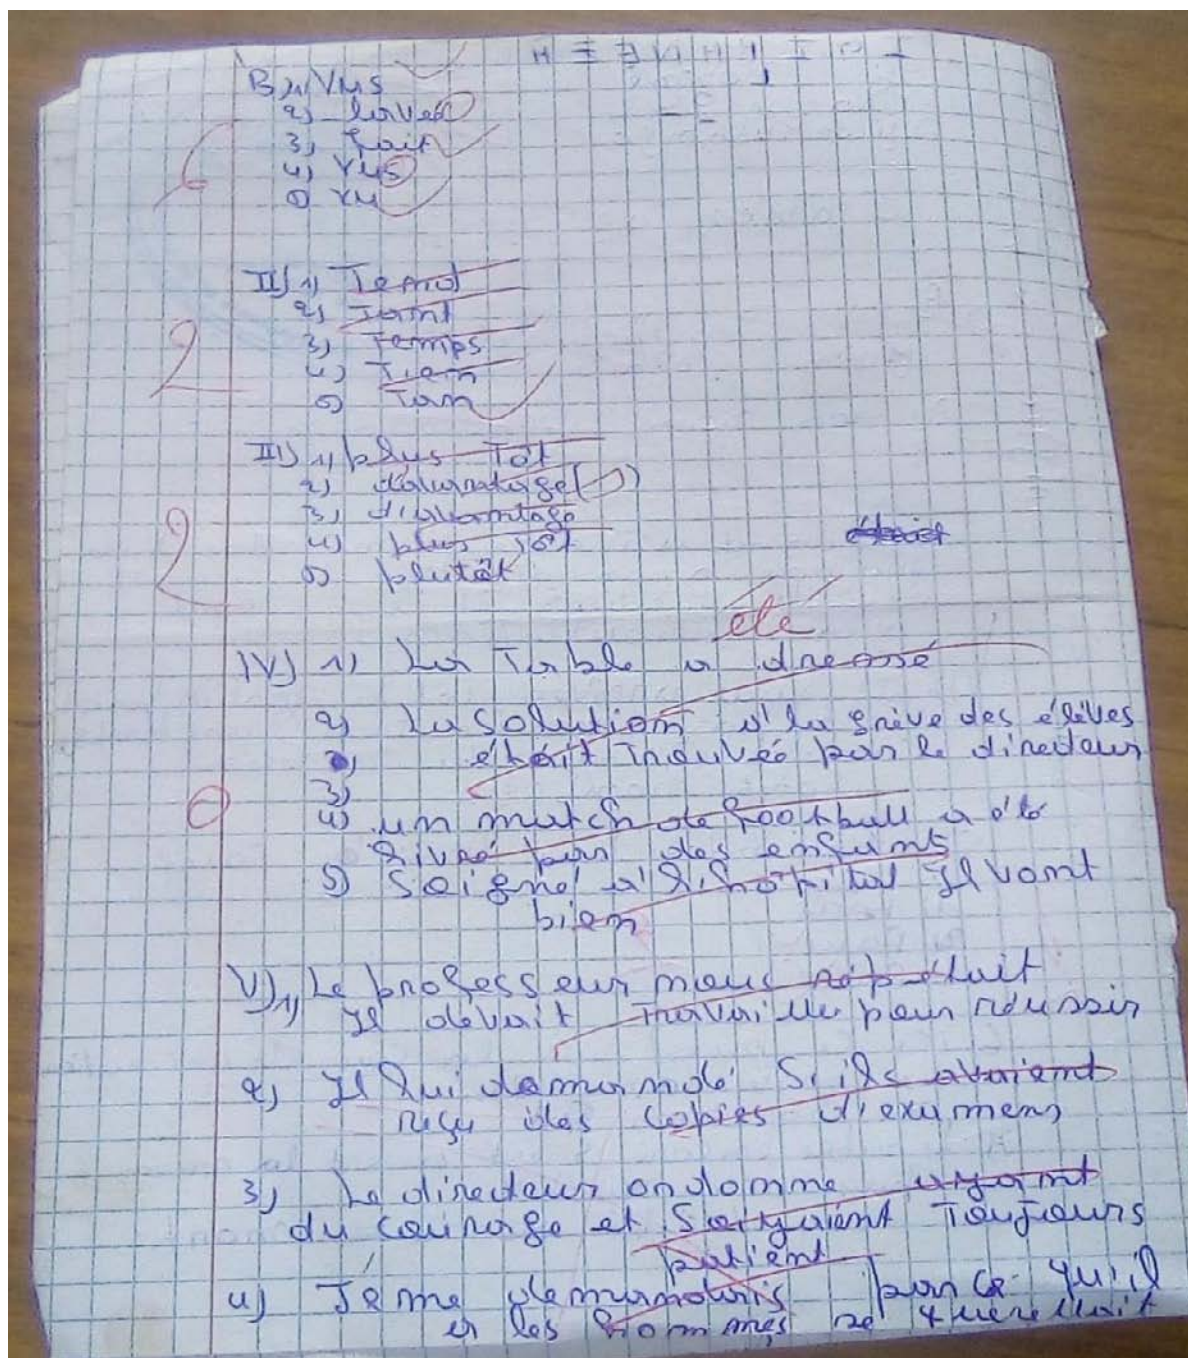 B) 1) Vus
2) lavée
3) fait
4) Vus
5) Vu
6
II) 1) Temd
2) Tamt
3) Temps
4) Tiem
5) Tan
2
III) 1) plus Tôt
2) davantage
3) d'avantage
4) plus tôt
5) plutôt
2
été
IV) 1) La Table a dressé
2) La solution d' la grève des élèves
était Trouvée par le directeur
3)
0
4) un match de football a été
livré par des enfants
5) Soigné a l'hôpital Il vont
bien
V) 1) Le professeur nous répétait
Il devait Travaille pour réussir
2) Il lui demandé Si ils avaient
reçu des copies d'examens
3) Le directeur ordonne ayant
du courage et Soiyaient Toujours
patient
4) Je me demandais par ce qu'il
les hommes se querellait